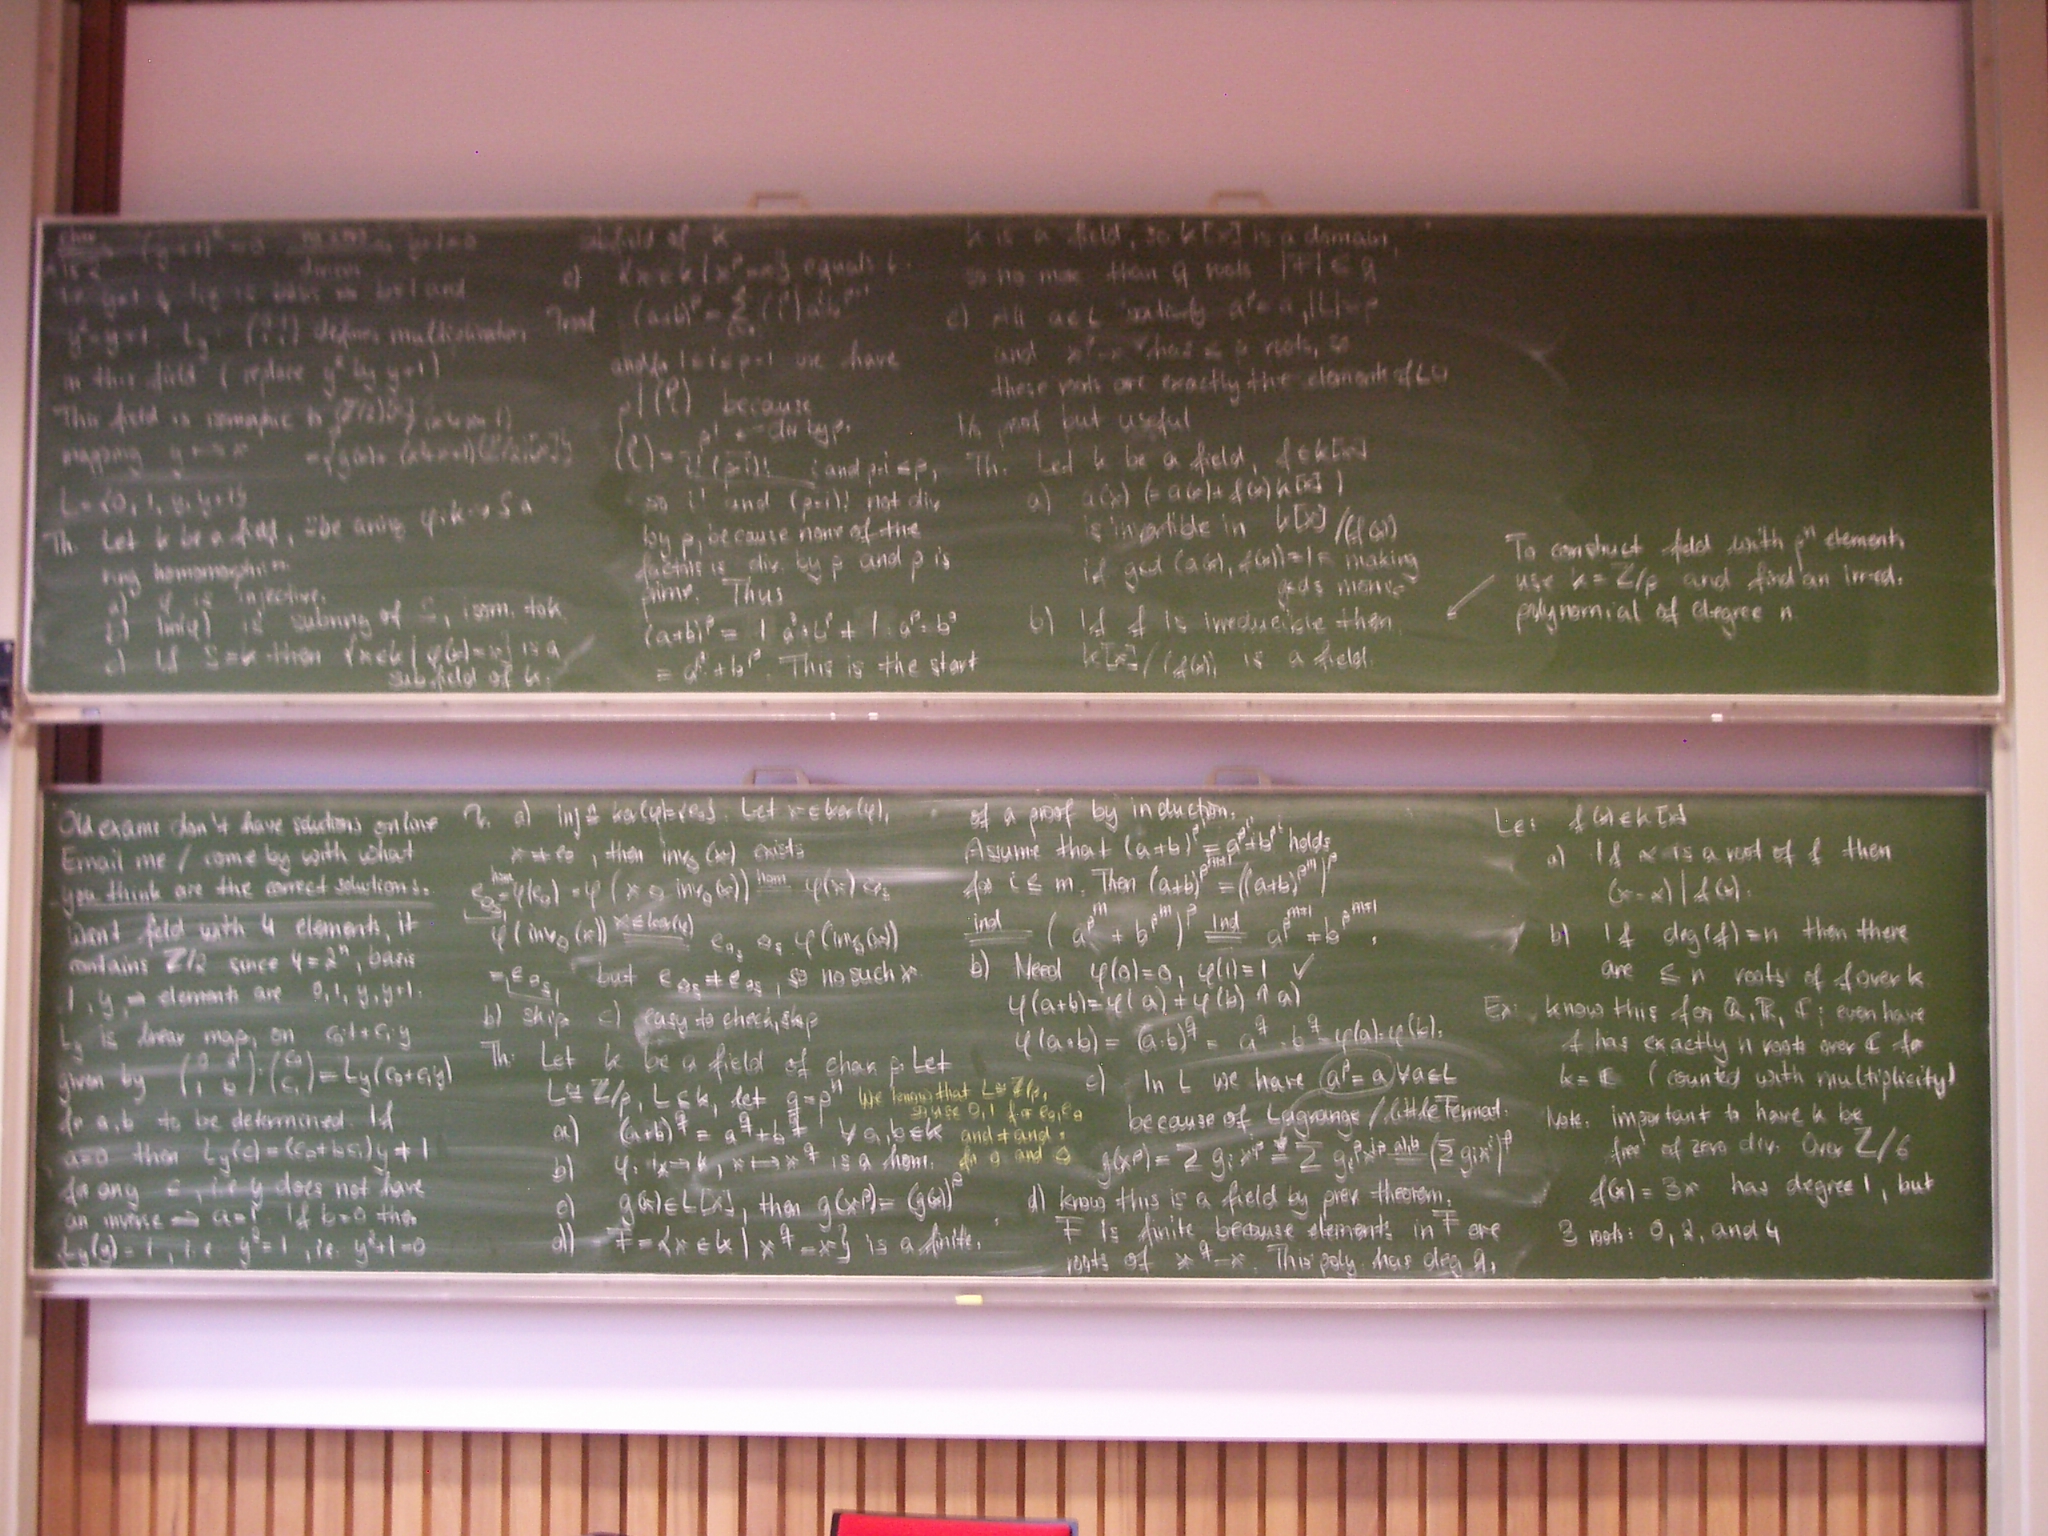 y²=y+1. L_y: defines multiplication
in this field (replace y² by y+1)
This field is isomorphic to
mapping y ↦ x
L={0,1,y,y+1}
Th. Let k be a field, S be a ring φ:k→S a
ring homomorphism
a) φ is injective.
b) Im(φ) is subring of S, isom. to k
c) If S=k then {x∈k | φ(x)=x} is a
subfield of k.
subfield of k
e) {x∈k | x^p=x} equals L.
Proof (a+b)^p =
and for 1≤i≤p-1 we have
p | (p i) because
p! ← div by p.
(p i) = i!(p-i)! i and p-i < p,
so i! and (p-i)! not div
by p, because none of the
factors is div. by p and p is
prime. Thus
(a+b)^p = 1·a^p·b^0 + 1·a^0·b^p
= a^p + b^p. This is the start
k is a field, so k[x] is a domain,
so no more than q roots |F| ≤ q
e) All a∈L satisfy a^p=a, |L|=p
and x^p-x has ≤ p roots, so
these roots are exactly the elements of L □
No proof but useful
Th. Let k be a field, f∈k[x]
a) a(x) (=a(x)+f(x)k[x])
is invertible in k[x]/(f(x))
if gcd(a(x),f(x))=1 ← making
gcds monic
b) If f is irreducible then
k[x]/(f(x)) is a field.
To construct field with p^n elements
use k=Z/p and find an irred.
polynomial of degree n
Old exams don't have solutions online
Email me / come by with what
you think are the correct solutions.
Want field with 4 elements, it
contains Z/2 since 4=2^n, basis
1,y → elements are 0,1,y,y+1.
L_y is linear map, on c₀·1+c₁y
given by (0 a; 1 b)·(c₀; c₁) = L_y(c₀+c₁y)
for a,b to be determined. If
a=0 then L_y(c)=(c₀+bc₁)y≠1
for any c, i.e. y does not have
an inverse → a=1. If b=0 then
L_y(y)=1, i.e. y²=1, i.e. y²+1=0
Pr. a) inj ⇔ ker(φ)={e₀}. Let x∈ker(φ),
x≠e₀, then inv_⊙(x) exists
φ(x⊙inv_⊙(x)) =hom φ(x)
φ(inv_⊙(x)) =x∈ker(φ) φ(inv_⊙(x))
but so no such x
b) skip c) easy to check, skip
Th: Let k be a field of char p. Let
L≅Z/p, L⊆k, let q=p^n
We know that L≅Z/p,
so use 0,1 for
and + and ·
for ⊕ and ⊙
a) (a+b)^q = a^q+b^q ∀a,b∈k
b) φ: k→k, x↦x^q is a hom.
c) g(x)∈L[x], then g(x^p)=(g(x))^p
d) F={x∈k | x^q=x} is a finite,
of a proof by induction.
Assume that (a+b)^{p^i}=a^{p^i}+b^{p^i} holds
for i≤m. Then (a+b)^{p^{m+1}}=((a+b)^{p^m})^p
=ind (a^{p^m}+b^{p^m})^p =ind a^{p^{m+1}}+b^{p^{m+1}}.
b) Need φ(0)=0, φ(1)=1 ✓
φ(a+b)=φ(a)+φ(b) ↑a)
φ(a·b)=(a·b)^q=a^q·b^q=φ(a)·φ(b).
c) In L we have a^p=a ∀a∈L
because of Lagrange / little Fermat.
g(x^p)=Σ g_i x^{ip} = Σ g_i^p x^{ip} =a),b) (Σ g_i x^i)^p
d) know this is a field by prev theorem.
F is finite because elements in F are
roots of x^q-x. This poly has deg q,
Le: f(x)∈k[x]
a) If α is a root of f then
(x-α) | f(x).
b) If deg(f)=n then there
are ≤ n roots of f over k
Ex: know this for Q, R, C; even have
f has exactly n roots over C for
k=C (counted with multiplicity)
Note: important to have k be
free of zero div. Over Z/6
f(x)=3x has degree 1, but
3 roots: 0, 2, and 4